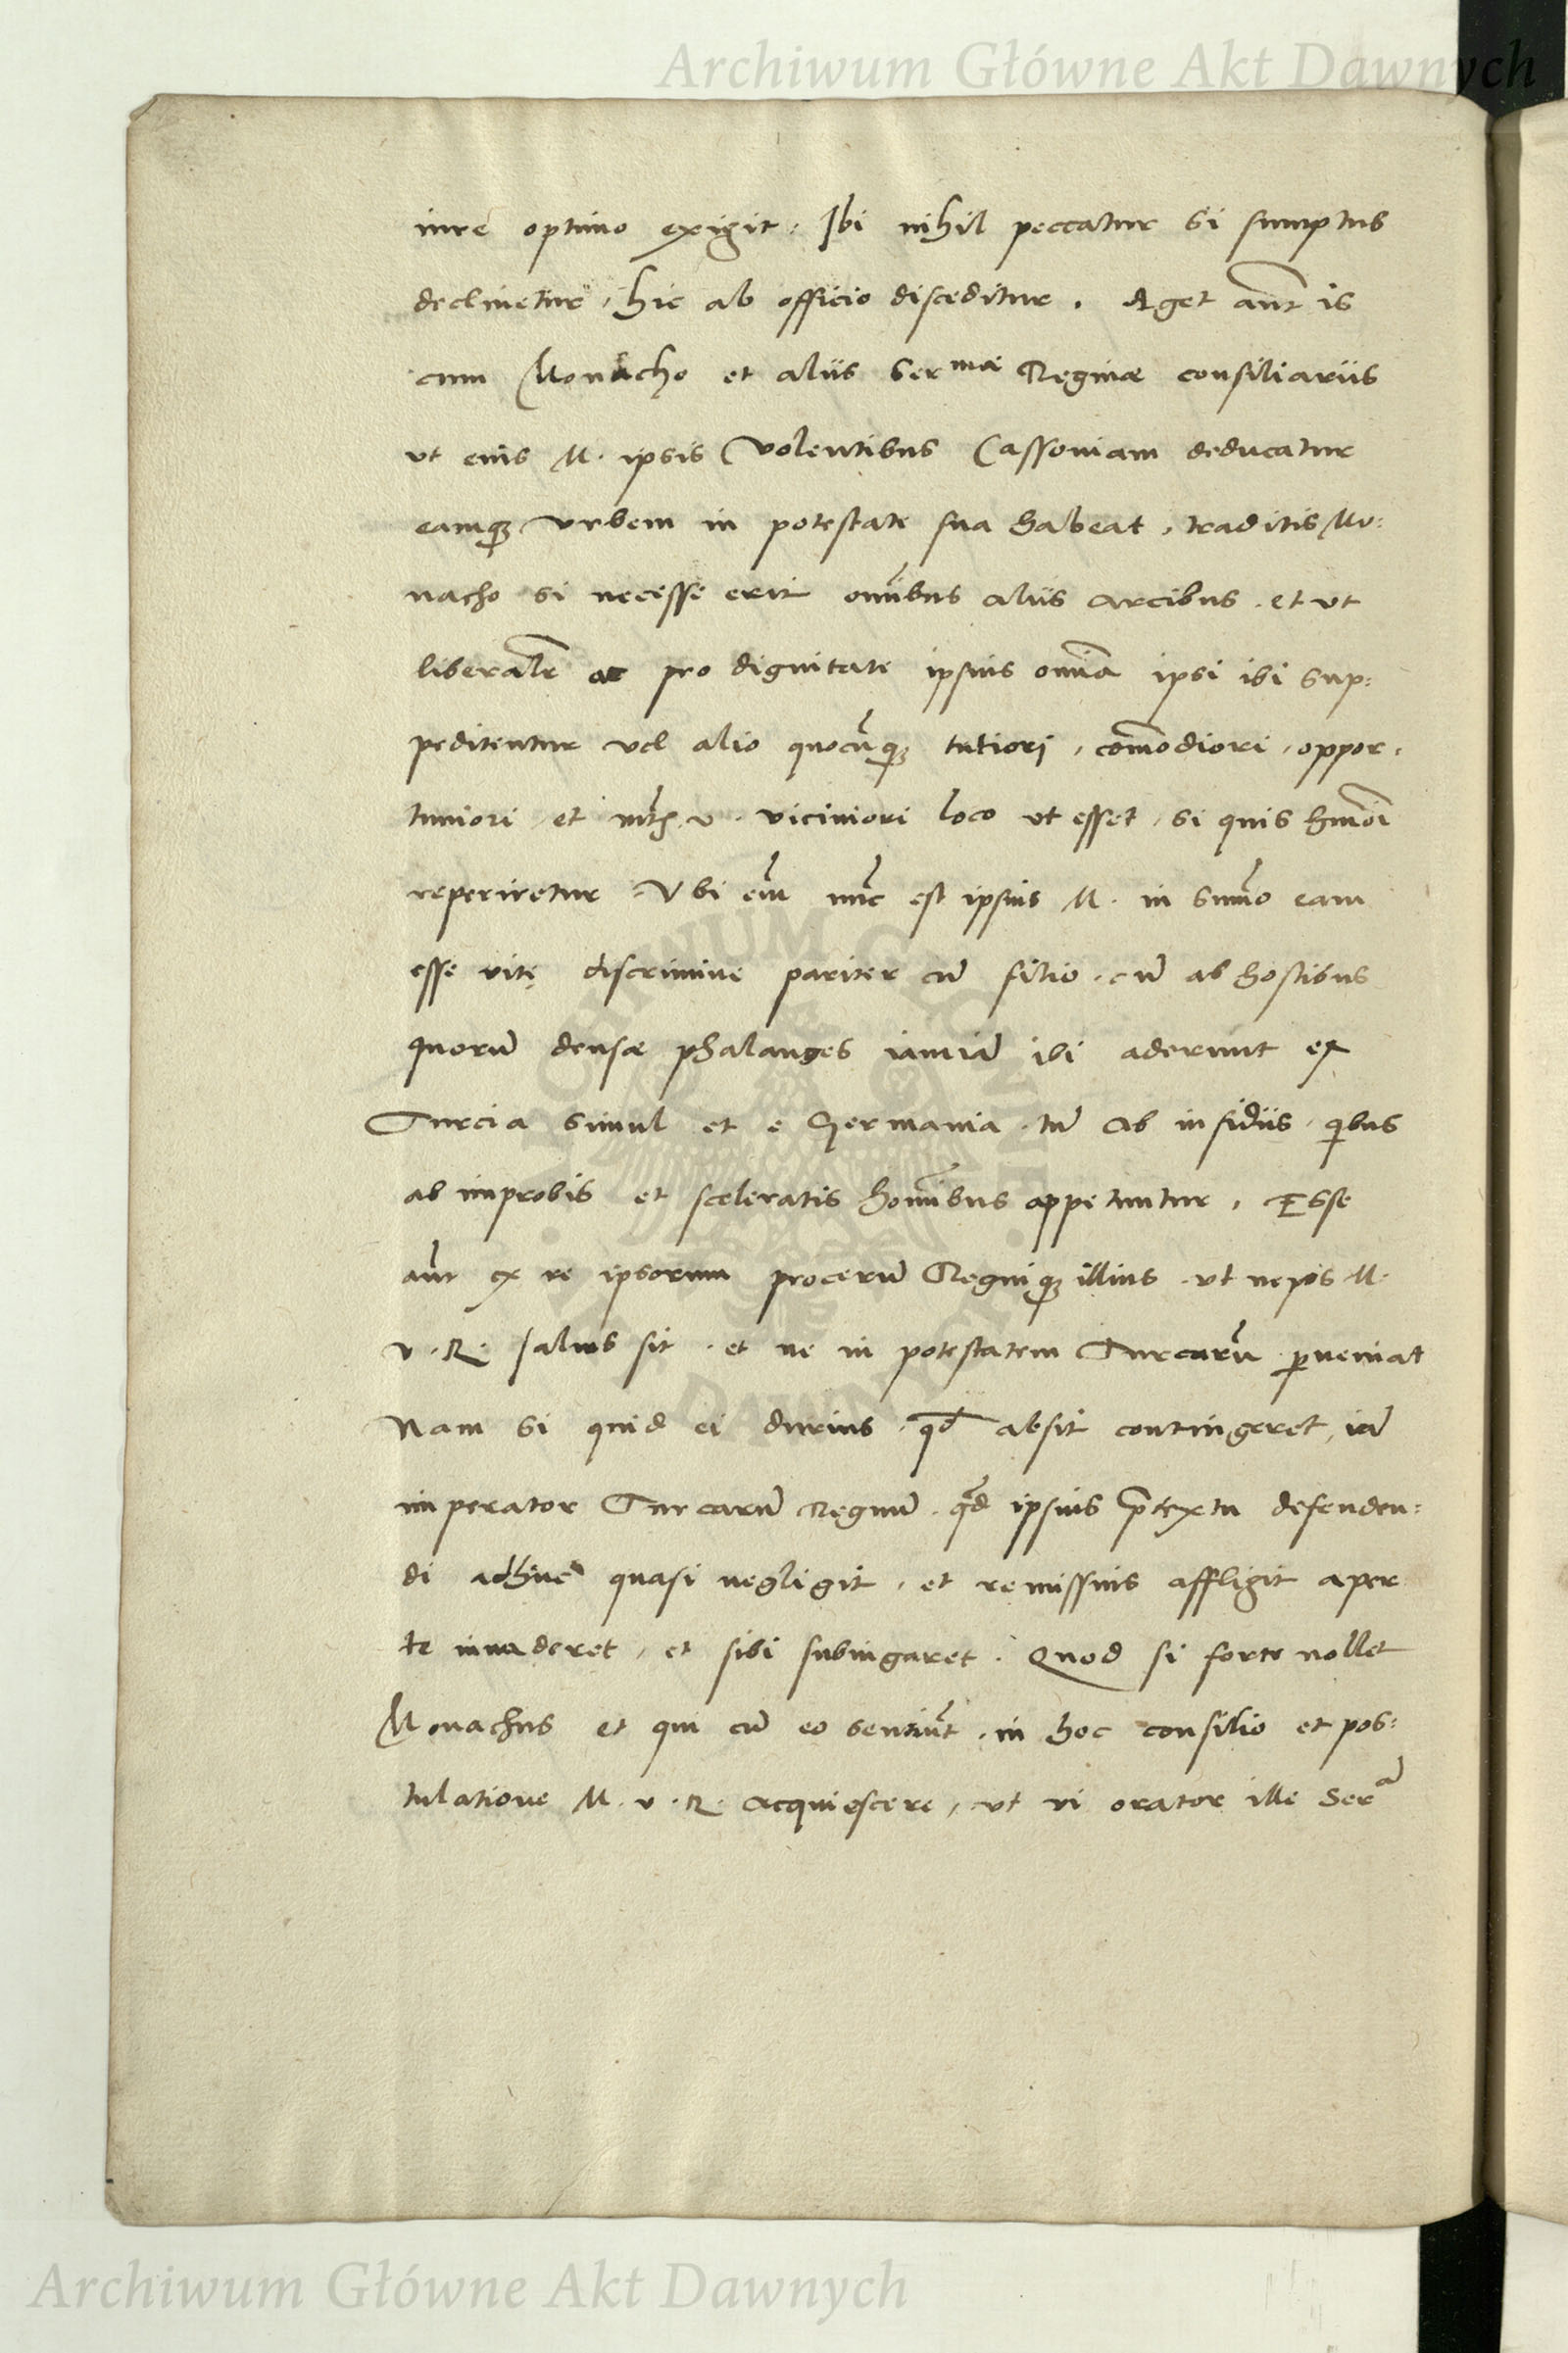 Archiwum Główne Akt Dawnych
iure optimo exigit. Ibi nihil peccatur si sumptus
declinetur, hic ab officio disceditur. Aget aūt is
cum Monacho et aliis Ser^mae Reginae consiliariis
ut eius M. ipsis volentibus Cassoviam deducatur
eamq; urbem in potestate sua habeat, traditis Mo:
nacho si necesse erit omībus aliis arcibus. et ut
liberalr̄ ac pro dignitate ipsius omīa ipsi ibi sup:
peditentur vel alio quocūq; tutiori, com̄odiori, oppor:
tuniori et v. viciniori loco ut esset, si quis hmōi
reperiretur. Ubi em̄ nūc est ipsius M. in sum̄o eam
esse vitę discrimine pariter cū filio. cū ab hostibus
quorū densae phalanges iamiā ibi aderunt ex
Turcia simul et e Germania. tū ab insidiis, qibus
ab improbis et sceleratis homībus appetuntur. Esse
aūt ex re ipsorum procerū Regniq; illius. ut nepos M.
v. R. salvus sit. et ne in potestatem Turcarū ꝑveniat
Nam si quid ei durius, qd̄ absit contingeret, iā
imperator Turcarū Regnū. qd̄ ipsius p̄textu defenden:
di adhuc quasi negligit, et remissius affligit aper
te invaderet, et sibi subiugaret. Quod si forte nollet
Monachus et qui cū eo sentiūt. in hoc consilio et pos:
tulatione M. v. R. acquiescere, ut vi orator ille Ser^a
ARCHIWUM GŁÓWNE AKT DAWNYCH
Archiwum Główne Akt Dawnych